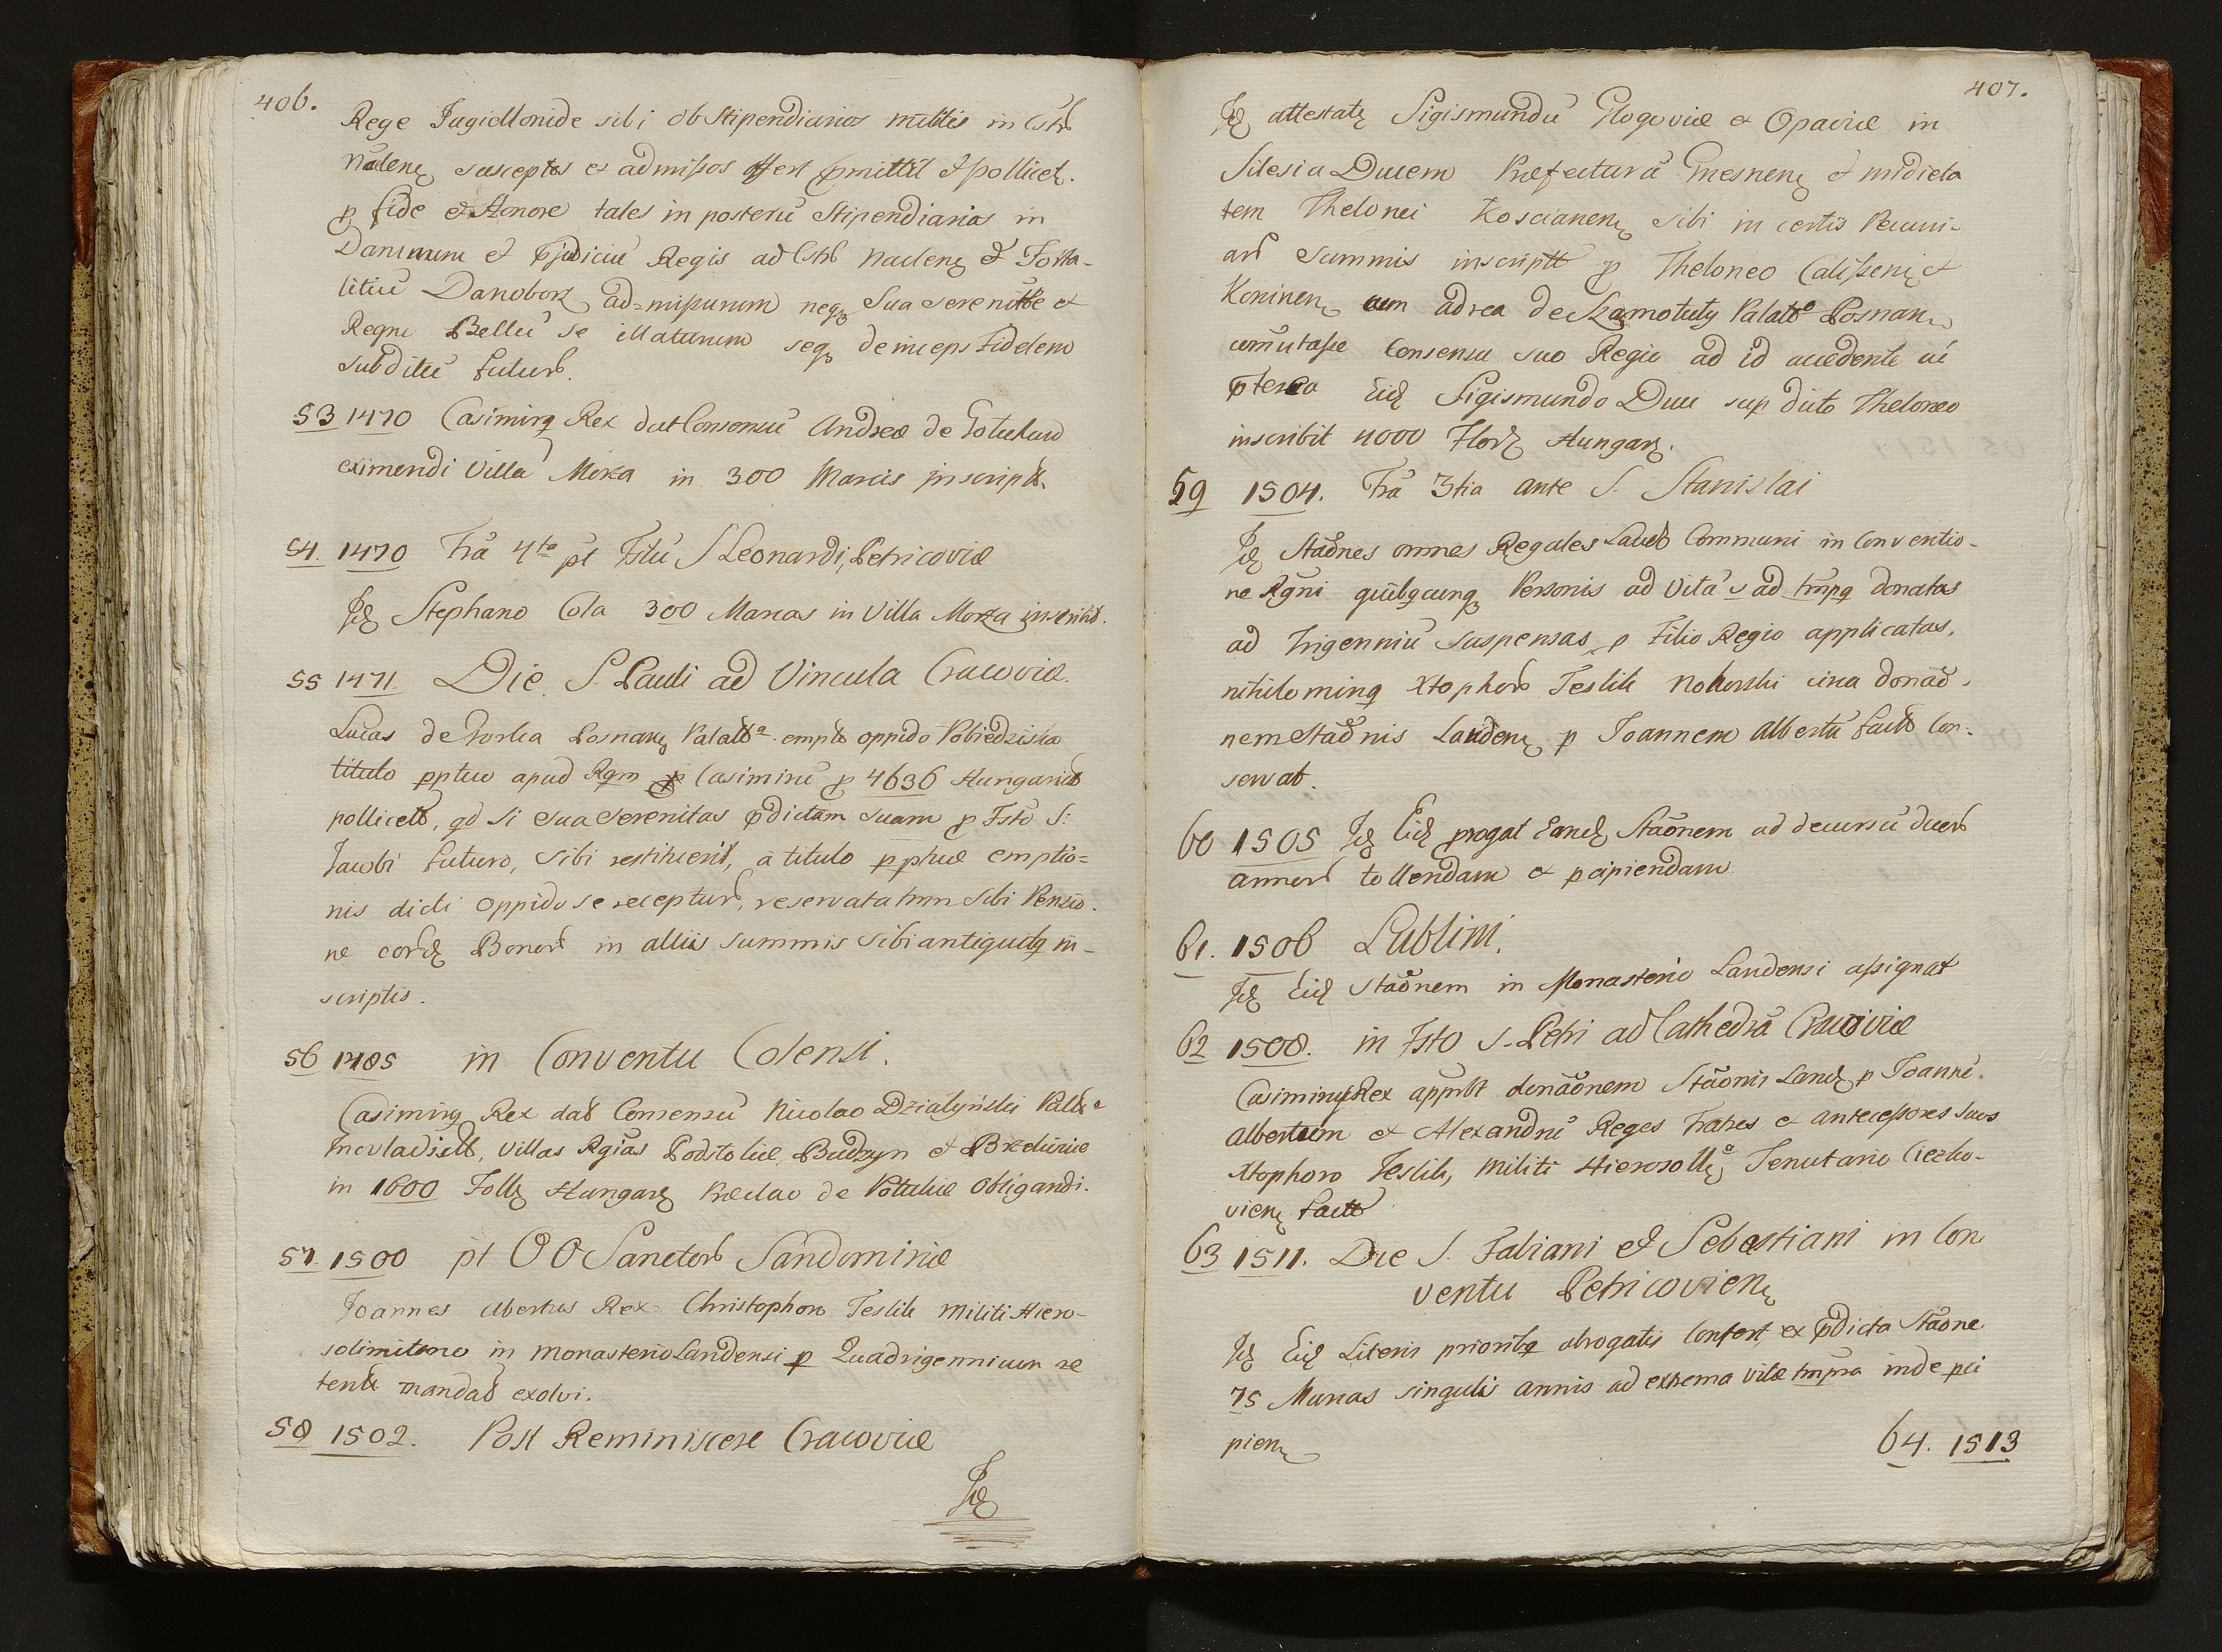 406.
Rege Jagiellonide sibi ob Stipendiarios milites in Cstr
Naklen susceptos et admissos offert pmittit & pollicet.
p fide et Honore tales in posterū Stipendiarios in
Damnum et pjudiciū Regis ad Cstr Naclen & Forta-
litiū Danoborz ad=missurum neq Sua Serenitte et
Regni Bellū se illaturum seq deinceps Fidelem
subditū futur.
53 1470 Casimirq Rex dat Consensū Andreæ de
eximendi Villā Morza in 300 Marcis inscript.
54. 1470 Fra 4to pt Fstū S Leonardi, Petricoviæ
Id Stephano Cola 300 Marcas in Villa Morza inscribit.
55 1471. Die S. Pauli ad Vincula Cracoviæ.
Lucas de Gorka Posnan Palatt empto oppido Pobiedziska
titulo pptuo apud Rgm Casimirū p 4636 Hungaricis
pollicett, qd si sua Serenitas pdictam suam p Fsto S:
Jacobi futuro, sibi restituerit, a titulo pptuæ emptio=
nis dicti oppidu se receptur, reservata tmn sibi Pensio-
ne eord Bonor in alliis summis sibi antiquitq in-
scriptis.
56 1485 in Conventu Colensi.
Casimirq Rex dat Consensū Nicolao Działyński Palte
Inovladislt, villas Rgias Podstolice, Budzyn et
in 1600 Follr Hungar Præclao de Potulice obligandi.
57. 1500 pt OO Sanctor Sandomiriæ
Joannes Abertus Rex Christophoro Teslik militi Hiero-
solimitano in monasterio Landensi p Quadrigennium se
tentt mandat exolvi.
58 1502. Post Reminiscere Cracoviæ
Id
407.
Id attestatr Sigismundū Glogoviæ & Opaviæ in
Silesia Ducem Præfecturā Gnesnen & midieta
tem Thelonei Koscianen sibi in certis Pecuni-
ar Summis inscriptt p Theloneo Calissieni et
Koninen cum adrea de Szamotuly Palatto Posnan
comutasse consensu suo Regio ad id accedente ac
pterea Eid Sigismundo Duci sup dicto Theloneo
inscribit 4000 Flor Hungar.
59 1504. Fra 3tia ante S. Stanislai
Id Staōnes omnes Regales Laudo Communi in Conventio-
ne Rgni quibqcunq Personis ad vitā s ad tmpq donatas
ad Trigenniū suspensas p Filio Regio applicatas,
nihilominq Xtophor Teslik Nokerski circa donaō-
nem Staōnis Landen p Joannem Albertū factt con-
servat.
60 1505 Id Eid progat Eand Staōnem ad decursū duor
annor tollendam et pcipiendam
61. 1506 Lublini.
Id Eid Staōnem in Monasterio Landensi assignat
62 1508. in Fsto S. Petri ad Cathedrā Cracoviæ
Casimirq Rex apprbt donaōnem Staōnis Land p Joanne.
Albertum et Alexandrū Reges Fratres et antecessores suos
Xtophoro Teslik, militi Hierosoll Tenutario
vien factt
63 1511. Die S. Fabiani et Sebastiani in Con
ventu Petricovien
Id Eid Literis prioribq abrogatis confert, ex pdicta Staōne
75 Marcas singulis annis ad extrema vitæ tmpra inde pci
pien
64. 1513